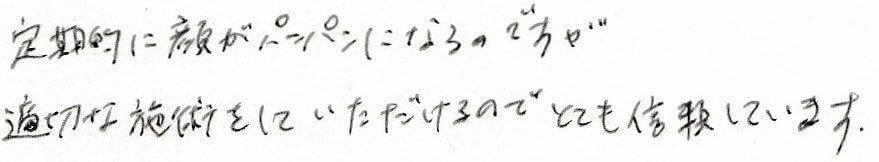 定期的に顔がパンパンになるのですが
適切な施術をしていただけるのでとても信頼しています.